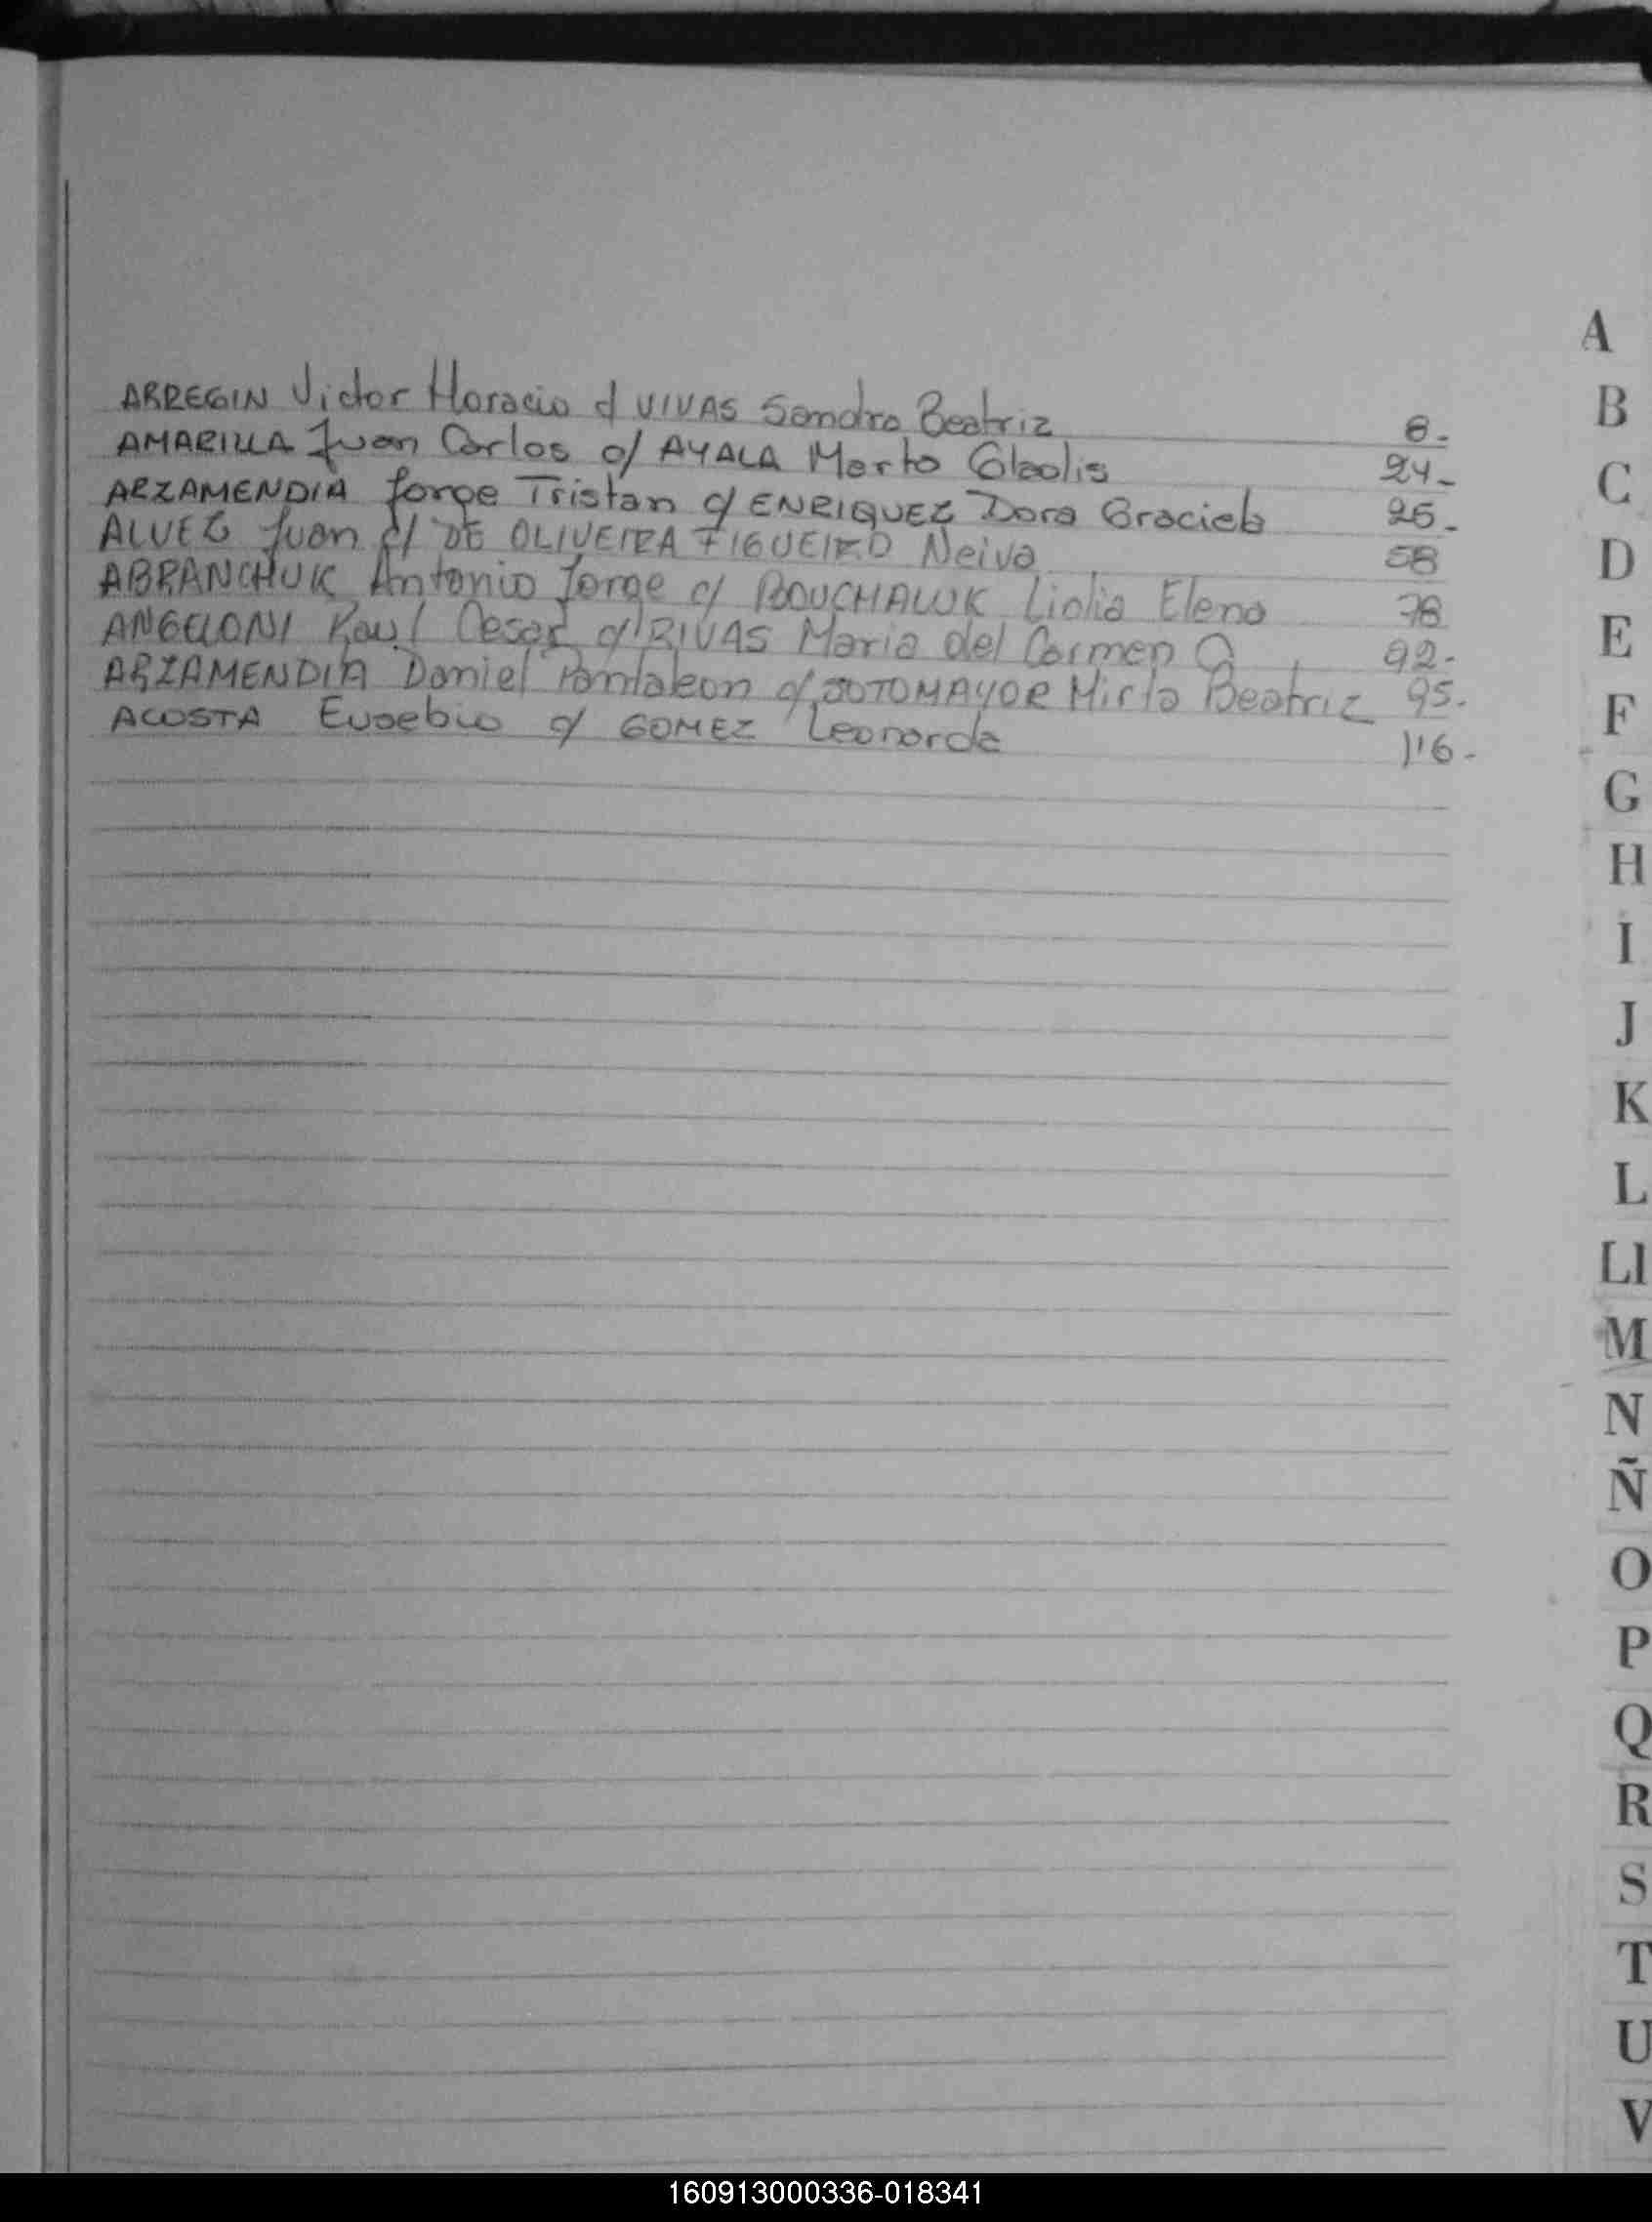 ARREGIN Victor Horacio c/ VIVAS Sandra Beatriz 8.-
AMARILLA Juan Carlos c/ AYALA Marta Gladis 24-
ARZAMENDIA Jorge Tristan c/ ENRIQUEZ Dora Graciela 25.-
ALVEZ Juan c/ DE OLIVEIRA FIGUEIRO Neiva 58
ABRANCHUK Antonio Jorge c/ BOUCHALUK Lidia Elena 78
ANGELONI Raul Cesar c/ RIVAS Maria del Carmen 92-
ARZAMENDIA Daniel Pantaleon c/ SOTOMAYOR Mirta Beatriz 95.
ACOSTA Eusebio c/ GOMEZ Leonarda 116-
A
B
C
D
E
F
G
H
I
J
K
L
Ll
M
N
Ñ
O
P
Q
R
S
T
U
V
160913000336-018341